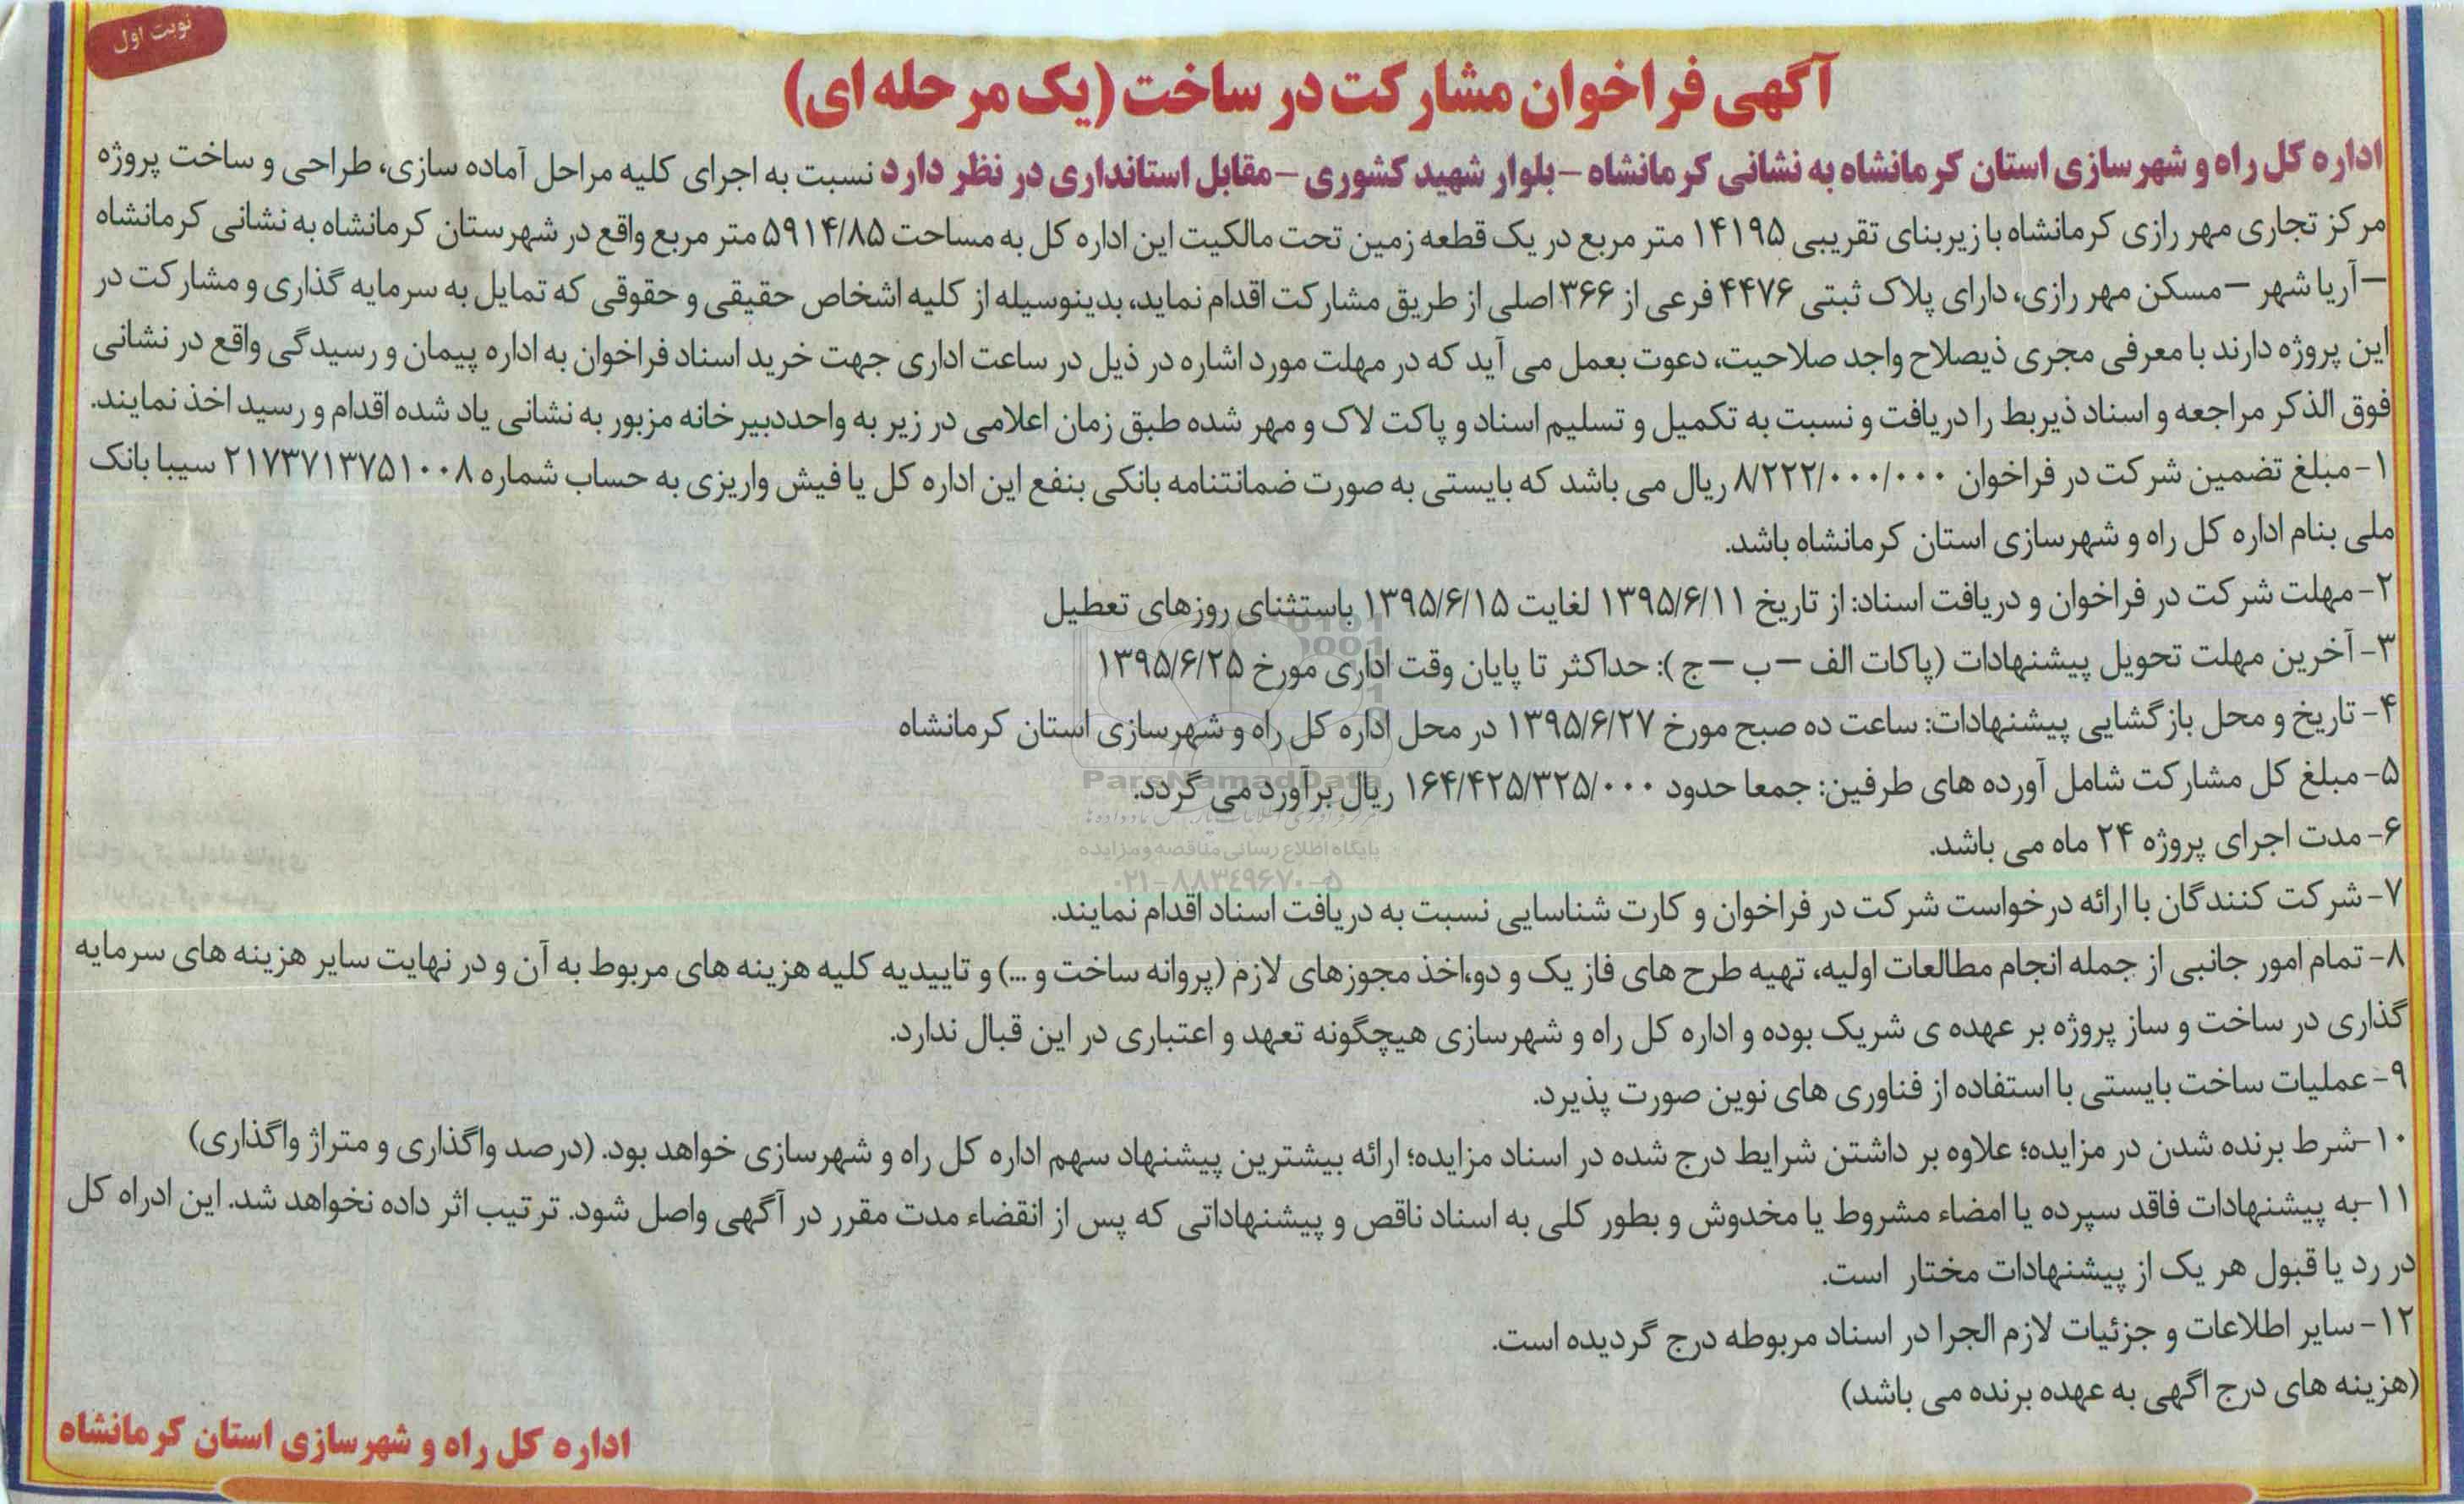 نوبت اول
آگهی فراخوان مشارکت در ساخت (یک مرحله ای)
اداره کل راه و شهرسازی استان کرمانشاه به نشانی کرمانشاه –بلوار شهید کشوری –مقابل استانداری در نظر دارد نسبت به اجرای کلیه مراحل آماده سازی، طراحی و ساخت پروژه
مرکز تجاری مهر رازی کرمانشاه با زیربنای تقریبی ۱۴۱۹۵ متر مربع در یک قطعه زمین تحت مالکیت این اداره کل به مساحت ۵۹۱۴/۸۵ متر مربع واقع در شهرستان کرمانشاه به نشانی کرمانشاه
–آریا شهر –مسکن مهر رازی، دارای پلاک ثبتی ۴۴۷۶ فرعی از ۳۶۶ اصلی از طریق مشارکت اقدام نماید، بدینوسیله از کلیه اشخاص حقیقی و حقوقی که تمایل به سرمایه گذاری و مشارکت در
این پروژه دارند با معرفی مجری ذیصلاح واجد صلاحیت، دعوت بعمل می آید که در مهلت مورد اشاره در ذیل در ساعت اداری جهت خرید اسناد فراخوان به اداره پیمان و رسیدگی واقع در نشانی
فوق الذکر مراجعه و اسناد ذیربط را دریافت و نسبت به تکمیل و تسلیم اسناد و پاکت لاک و مهر شده طبق زمان اعلامی در زیر به واحددبیرخانه مزبور به نشانی یاد شده اقدام و رسید اخذ نمایند.
۱- مبلغ تضمین شرکت در فراخوان ۸/۲۲۲/۰۰۰/۰۰۰ ریال می باشد که بایستی به صورت ضمانتنامه بانکی بنفع این اداره کل یا فیش واریزی به حساب شماره ۲۱۷۳۷۱۳۷۵۱۰۰۸ سیبا بانک
ملی بنام اداره کل راه و شهرسازی استان کرمانشاه باشد.
۲- مهلت شرکت در فراخوان و دریافت اسناد: از تاریخ ۱۳۹۵/۶/۱۱ لغایت ۱۳۹۵/۶/۱۵ باستثنای روزهای تعطیل
۳- آخرین مهلت تحویل پیشنهادات (پاکات الف –ب –ج ): حداکثر تا پایان وقت اداری مورخ ۱۳۹۵/۶/۲۵
۴- تاریخ و محل بازگشایی پیشنهادات: ساعت ده صبح مورخ ۱۳۹۵/۶/۲۷ در محل اداره کل راه و شهرسازی استان کرمانشاه
۵- مبلغ کل مشارکت شامل آورده های طرفین: جمعا حدود ۱۶۴/۴۲۵/۳۲۵/۰۰۰ ریال برآورد می گردد.
ParsNamadData
پایگاه اطلاع رسانی مناقصه و مزایده
۰۲۱-۸۸۳۴۹۶۷۰-۵
۶- مدت اجرای پروژه ۲۴ ماه می باشد.
۷- شرکت کنندگان با ارائه درخواست شرکت در فراخوان و کارت شناسایی نسبت به دریافت اسناد اقدام نمایند.
۸- تمام امور جانبی از جمله انجام مطالعات اولیه، تهیه طرح های فاز یک و دو،اخذ مجوزهای لازم (پروانه ساخت و ...) و تاییدیه کلیه هزینه های مربوط به آن و در نهایت سایر هزینه های سرمایه
گذاری در ساخت و ساز پروژه بر عهده ی شریک بوده و اداره کل راه و شهرسازی هیچگونه تعهد و اعتباری در این قبال ندارد.
۹- عملیات ساخت بایستی با استفاده از فناوری های نوین صورت پذیرد.
۱۰-شرط برنده شدن در مزایده؛ علاوه بر داشتن شرایط درج شده در اسناد مزایده؛ ارائه بیشترین پیشنهاد سهم اداره کل راه و شهرسازی خواهد بود. (درصد واگذاری و متراژ واگذاری)
۱۱-به پیشنهادات فاقد سپرده یا امضاء مشروط یا مخدوش و بطور کلی به اسناد ناقص و پیشنهاداتی که پس از انقضاء مدت مقرر در آگهی واصل شود. ترتیب اثر داده نخواهد شد. این ادراه کل
در رد یا قبول هر یک از پیشنهادات مختار است.
۱۲- سایر اطلاعات و جزئیات لازم الجرا در اسناد مربوطه درج گردیده است.
(هزینه های درج اگهی به عهده برنده می باشد)
اداره کل راه و شهرسازی استان کرمانشاه